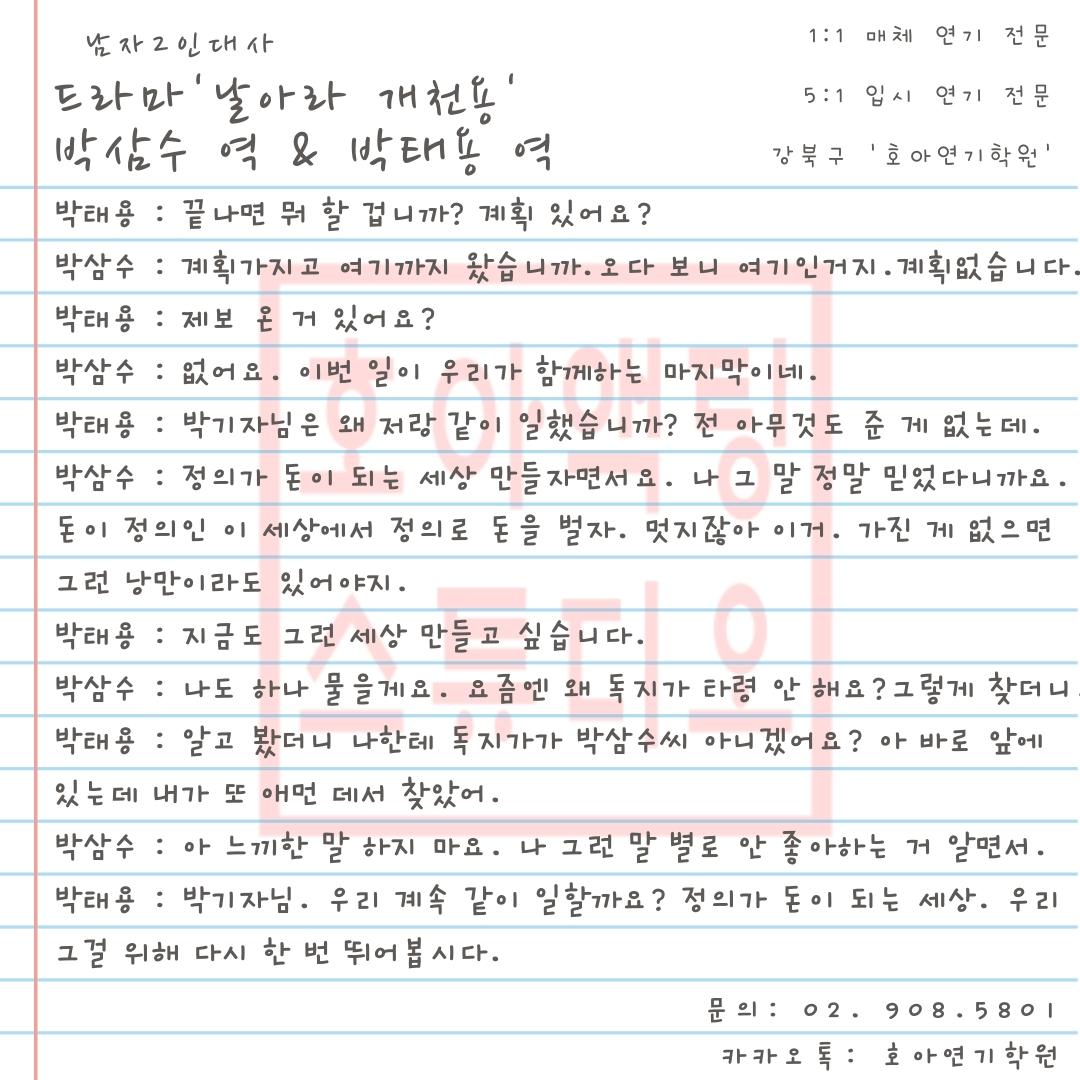 남자2인대사
1:1 매체 연기 전문
드라마 '날아라 개천용'
5:1 입시 연기 전문
박삼수 역 & 박태용 역
강북구 '호아연기학원'
박태용 : 끝나면 뭐 할 겁니까? 계획 있어요?
박삼수 : 계획가지고 여기까지 왔습니까.오다 보니 여기인거지.계획없습니다.
박태용 : 제보 온 거 있어요?
박삼수 : 없어요. 이번 일이 우리가 함께하는 마지막이네.
박태용 : 박기자님은 왜 저랑 같이 일했습니까? 전 아무것도 준 게 없는데.
박삼수 : 정의가 돈이 되는 세상 만들자면서요. 나 그 말 정말 믿었다니까요.
돈이 정의인 이 세상에서 정의로 돈을 벌자. 멋지잖아 이거. 가진 게 없으면
그런 낭만이라도 있어야지.
박태용 : 지금도 그런 세상 만들고 싶습니다.
박삼수 : 나도 하나 물을게요. 요즘엔 왜 독지가 타령 안 해요?그렇게 찾더니.
박태용 : 알고 봤더니 나한테 독지가가 박삼수씨 아니겠어요? 아 바로 앞에
있는데 내가 또 애먼 데서 찾았어.
박삼수 : 아 느끼한 말 하지 마요. 나 그런 말 별로 안 좋아하는 거 알면서.
박태용 : 박기자님. 우리 계속 같이 일할까요? 정의가 돈이 되는 세상. 우리
그걸 위해 다시 한 번 뛰어봅시다.
문의: 02. 908.5801
카카오톡: 호아연기학원
호아액팅
스튜디오